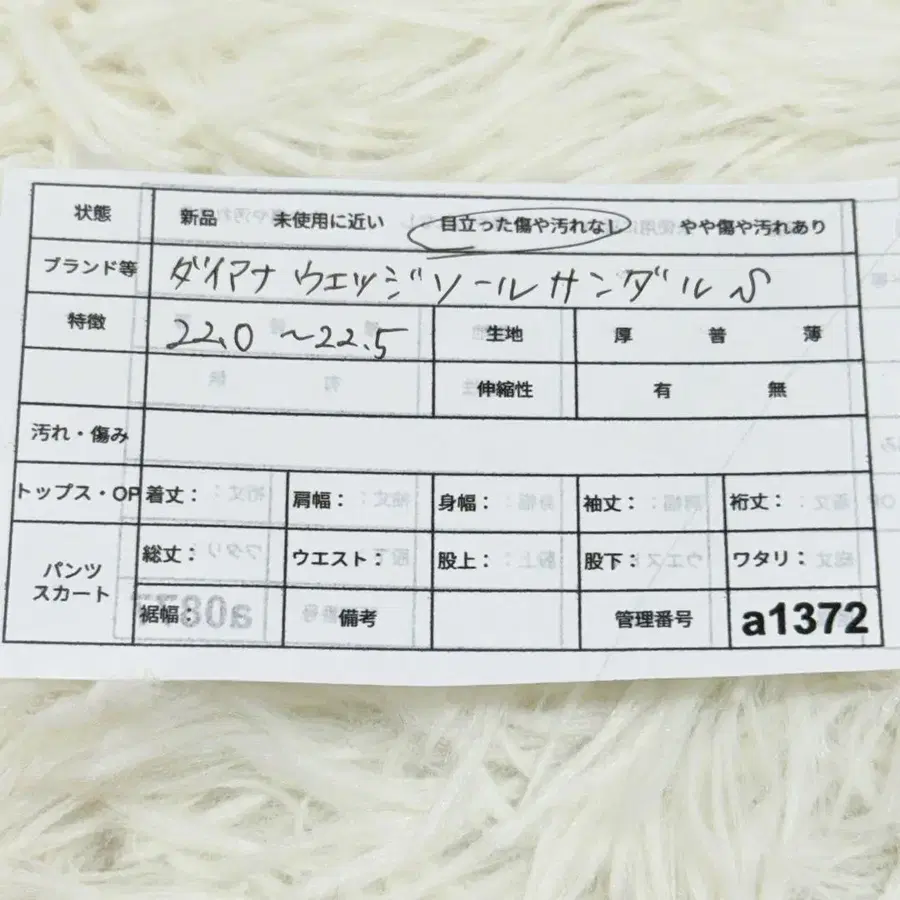 状態 新品 未使用に近い 目立った傷や汚れなし やや傷や汚れあり
ブランド等 ダイアナ ウエッジソールサンダル S
特徴 22.0 〜22.5 生地 厚 普 薄
伸縮性 有 無
汚れ・傷み
トップス・OP 着丈： 肩幅： 身幅： 袖丈： 裄丈：
パンツ スカート 総丈： ウエスト： 股上： 股下： ワタリ：
裾幅： 備考 管理番号 a1372